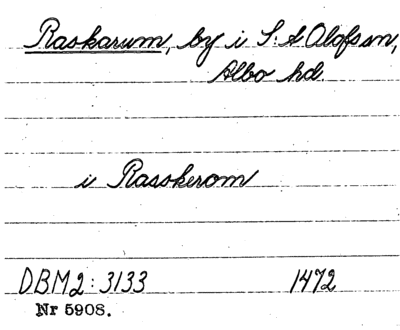 Raskarum, by i S:t Olofs sn,
Albo hd.
i Rasskerom
DBM2:3133 1472
Nr 5908.